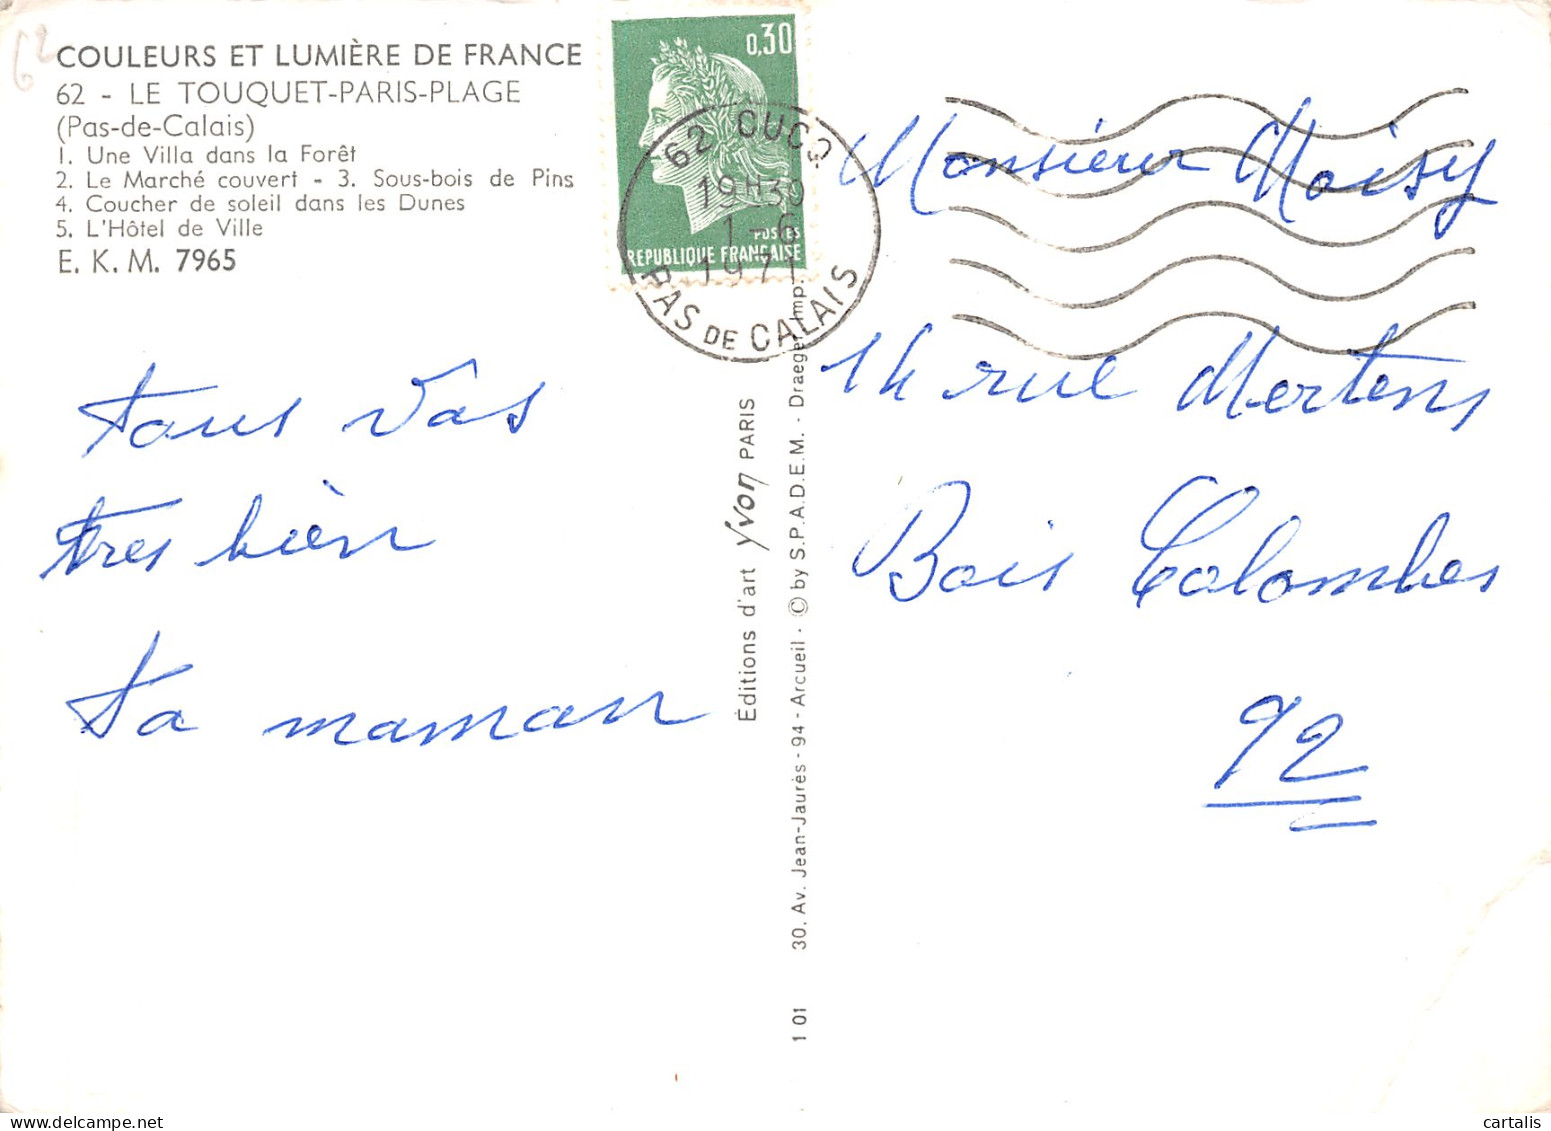 62
COULEURS ET LUMIÈRE DE FRANCE
62 - LE TOUQUET-PARIS-PLAGE
(Pas-de-Calais)
1. Une Villa dans la Forêt
2. Le Marché couvert - 3. Sous-bois de Pins
4. Coucher de soleil dans les Dunes
5. L'Hôtel de Ville
E. K. M. 7965
0,30
POSTES
REPUBLIQUE FRANÇAISE
62 CUCQ
19H30
1-6
1971
PAS DE CALAIS
tous vas
tres bièn
ta maman
Éditions d'art Yvon PARIS
30. Av. Jean-Jaurès - 94 - Arcueil - © by S.P.A.D.E.M. - Draeger Imp.
1 01
Monsieur Moisy
14 rue Mertens
Bois Colombes
92
cartalis